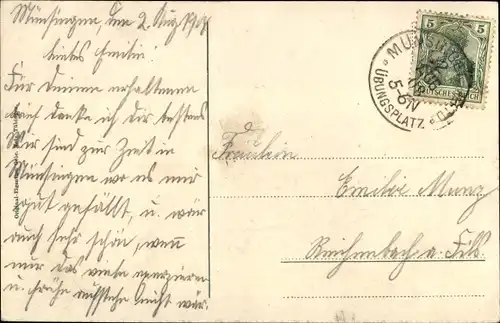 Münsingen, den 2. Aug. 1909
Liebes Emilie!
Für Deinen erhaltenen
danke ich dir bestens
Wir sind zur Zeit in
Münsingen wo es mir
gut gefällt, u. wär
auch sehr schön, wenn
nur das viele exerzieren
u. frühe aufstehe nicht wär.
Fräulein
Emilie Munz
Reichenbach a. Fils.
5
DEUTSCHES REICH
MÜNSINGEN
5-6N
ÜBUNGSPLATZ